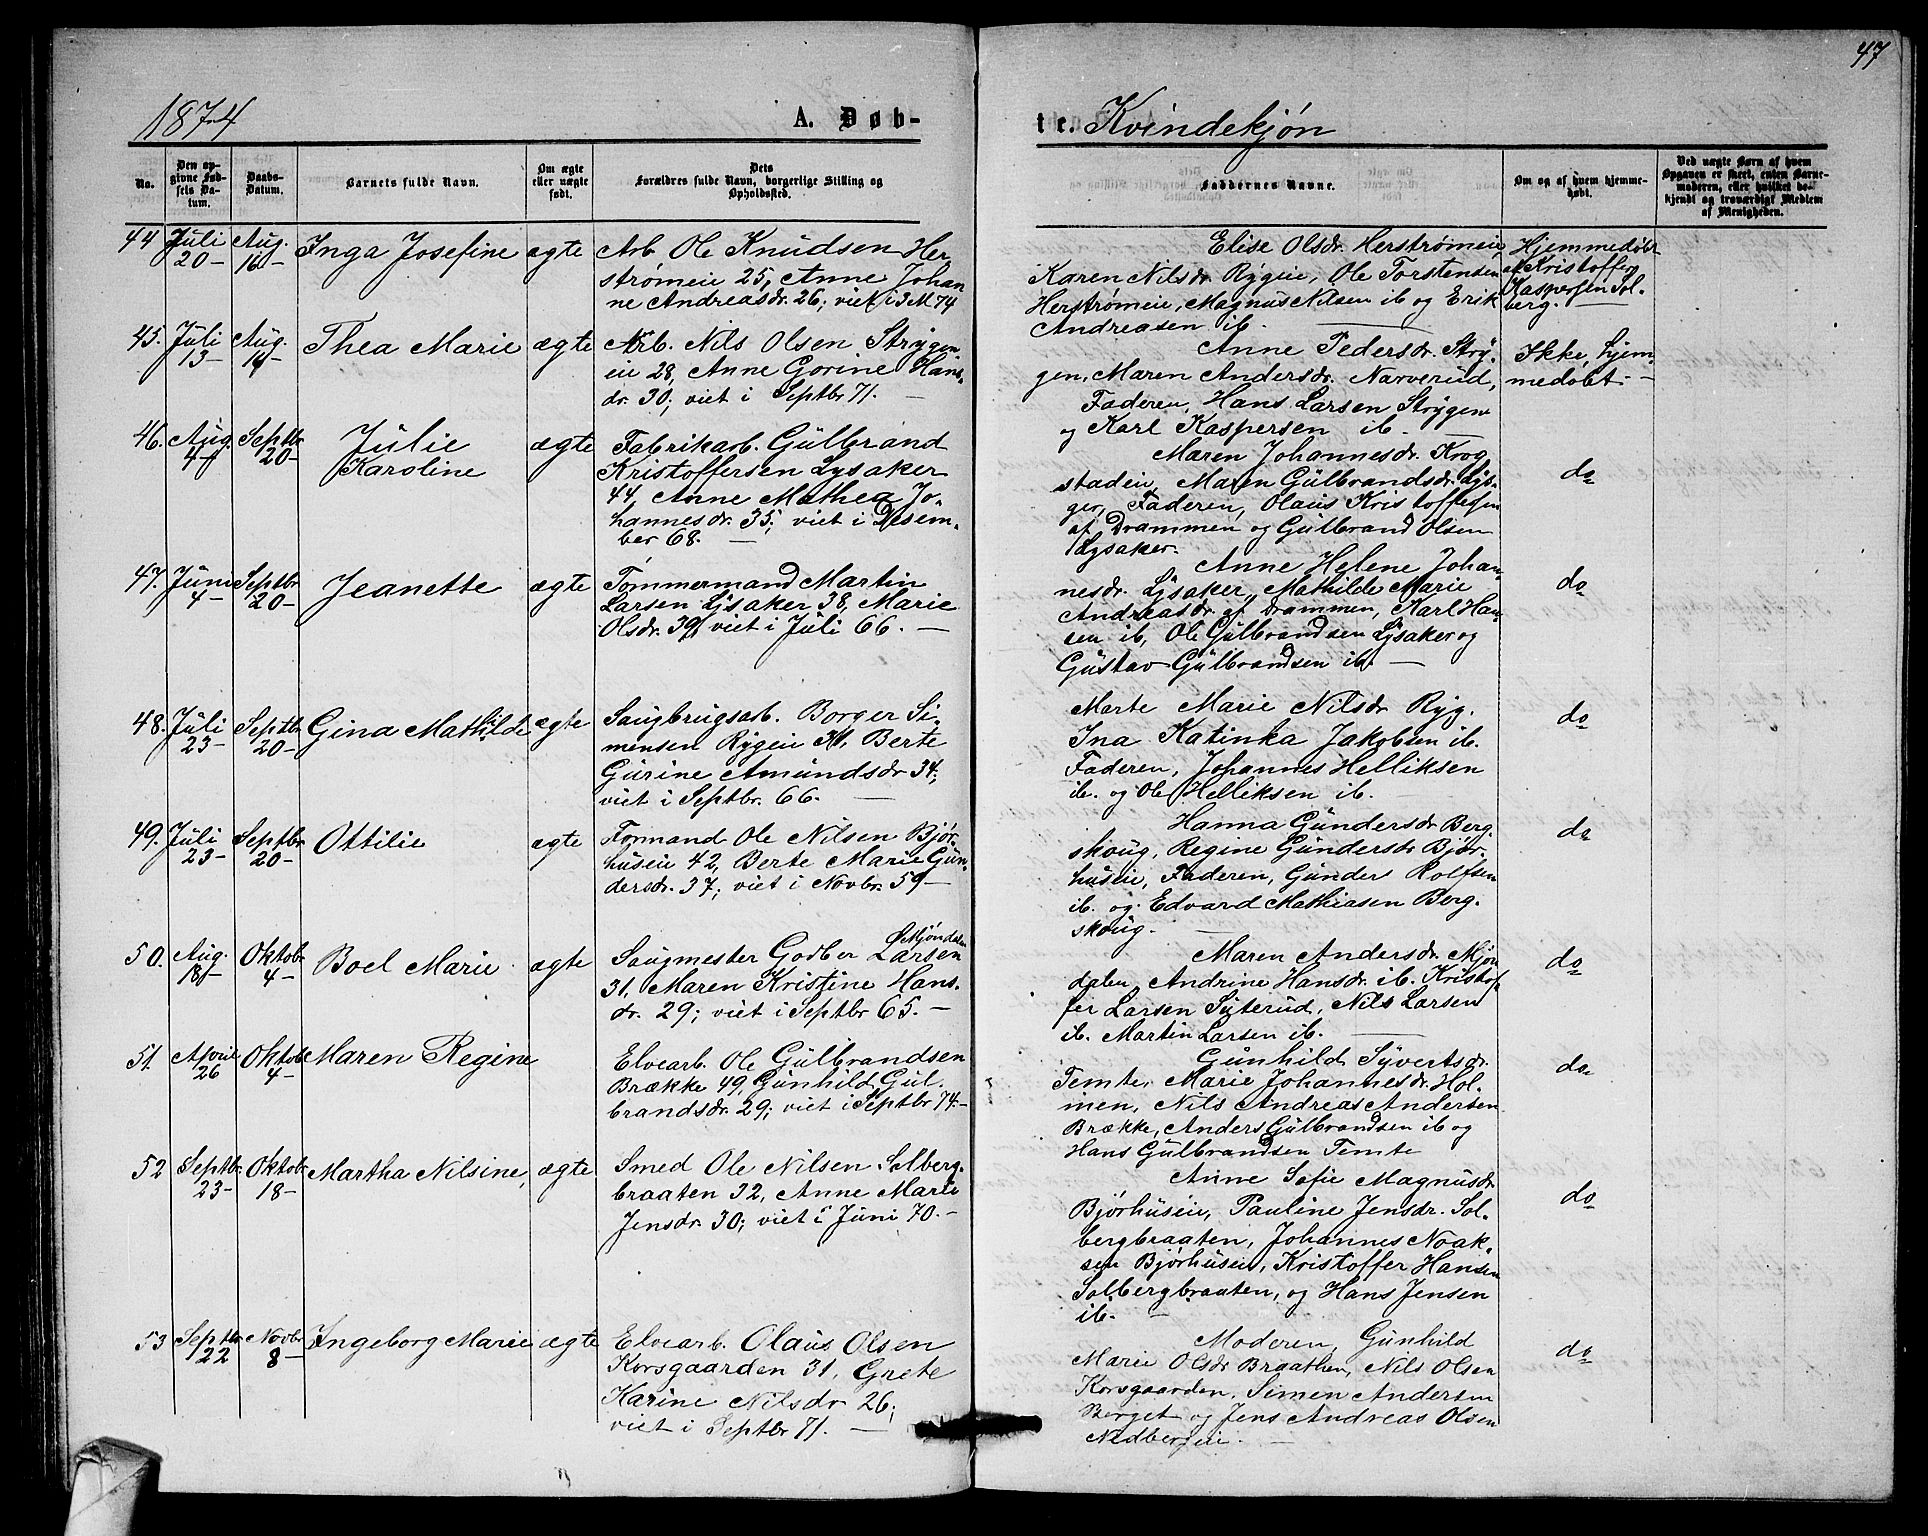 47
1874
A. Døb-
te. Kvindekjøn
No.
Den op-
givne Fød-
sels Da-
tum.
Daabs-
Datum.
Barnets fulde Navn.
Om ægte
eller uægte
født.
Dets
Forældres fulde Navn, borgerlige Stilling og
Opholdssted.
Faddernes Navne.
Om og af hvem hjemme-
døbt.
Ved uægte Børn af hvem
Opgaven er skeet, enten Barne-
moderen, eller hvilket be-
kjendt og troværdigt Medlem
af Menigheden.
44 Juli 20- Aug. 16- Inga Josefine ægte
Arb. Ole Knudsen Her-
strømeie 25, Anne Johan
ne Andreasdr. 26; viet i 3 M 74
Elise Olsdr. Herstrømeie,
Karen Nilsdr. Rygeie, Ole Torstensen
Herstrømeie, Magnus Nilsen ib og Erik
Andreasen ib.
Hjemmedøbt
af Kristoffer
Kaspersen Sol-
berg.
45. Juli 13- Aug. 16- Thea Marie ægte
Arb. Nils Olsen Strygen
eie 28, Anne Gorine Hans-
dr. 30; viet i Septbr 71.
Anne Pedersdr. Stry-
gen, Maren Andersdr. Narverud,
Faderen, Hans Larsen Strygen
og Karl Kaspersen ib.
Ikke hjem-
medøbt.
46. Aug. 4- Septbr. 20- Julie
Karoline ægte
Fabrikarb. Gulbrand
Kristoffersen Lysaker
44, Anne Mathea Jo-
hannesdr. 35; viet i Desem-
ber 68.
Maren Johannesdr. Krog
stadeie, Maren Gulbrandsdr. Lys-
ger, Faderen, Olaus Kristoffersen
af Drammen og Gulbrand Olsen
Lysaker.
do
47. Juni 4- Septbr 20- Jeanette ægte
Tømmermand Martin
Larsen Lysaker 38, Marie
Olsdr. 39; viet i Juli 66.
Anne Helene Johan-
nesdr. Lysaker, Mathilde Marie
Andreasdr. af Drammen, Karl Han-
sen ib, Ole Gulbrandsen Lysaker og
Gustav Gulbrandsen ib.
do
48. Juli 23- Septbr 20- Gina Mathilde ægte
Saugbrugsarb. Borger Si-
mensen Rygeie 31, Berte
Gurine Amundsdr 34;
viet i Septbr. 66.
Marte Marie Nilsdr Ryg.
Ina Katinka Jakobsen ib.
Faderen, Johannes Helliksen
ib. og Ole Helliksen ib.
do
49. Juli 23- Septbr 20- Ottilie ægte
Formand Ole Nilsen Bjør-
huseie 42, Berte Marie Gun-
dersdr. 37; viet i Novbr. 59-
Hanna Gundersdr Berg-
skoug, Regine Gundersdr Bjør-
huseie, Faderen, Gunder Rolfsen
ib. og Edvard Mathiasen Berg-
skoug.
do
50. Aug. 18- Oktobr 4- Boel Marie ægte
Mjøndalen
Saugmester Godber Larsen
31, Maren Kristine Hans-
dr. 29; viet i Septbr 65.
Maren Andersdr. Mjøn
dalen, Andrine Hansdr ib. Kristof
fer Larsen Syterud, Nils Larsen
ib. Martin Larsen ib.
do
51. April 26 Oktobr 4- Maren Regine
Elvearb. Ole Gulbrandsen
Brække 49, Gunhild Gul-
brandsdr. 29; viet i Septbr 74.
Gunhild Syvertsdr.
Temte, Marie Johannesdr. Hol-
men, Nils Andreas Andersen
Brække, Anders Gulbrandsen ib og
Hans Gulbrandsen Temte
do
52 Septbr 23- Oktobr 18- Martha Nilsine, ægte
Smed Ole Nilsen Solberg-
braaten 32, Anne Marie
Jensdr. 30; viet i Juni 70.
Anne Sofie Magnusdr.
Bjørhuseie, Pauline Jensdr. Sol-
bergbraaten, Johannes Noak-
sen Bjørhuseie, Kristoffer Hansen
Solbergbraaten, og Hans Jensen
ib.
do
53 Septbr 22 Novbr 8- Ingeborg Marie ægte
Elvearb. Olaus Olsen
Korsgaarden 31, Grete
Karine Nilsdr 26;
viet i Septbr 71.
Moderen, Gunhild
Marie Olsdr Braathen, Nils Olsen
Korsgaarden, Simen Andersen
Berget og Jens Andreas Olsen
Nedbergeie.
do